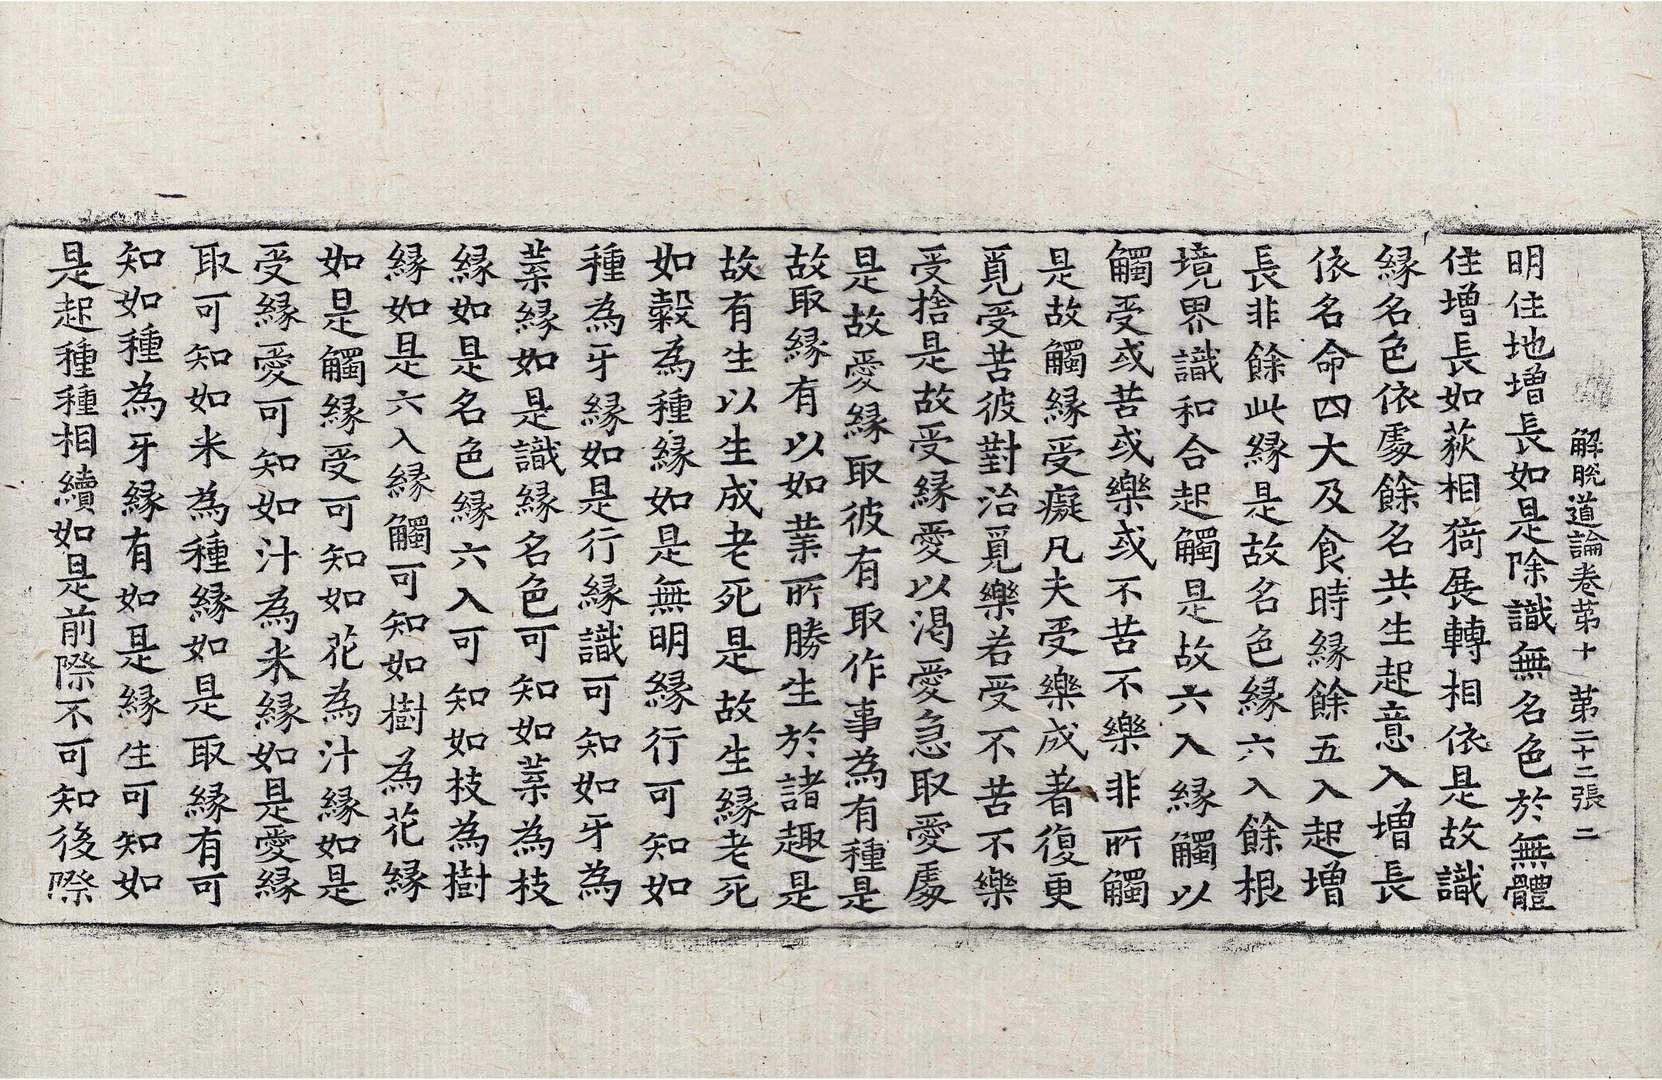 解脫道論卷第十 第二十二張 二
明住地增長如是除識無名色於無體
住增長如荻相猗展轉相依是故識
緣名色依處餘名共生起意入增長
依名命四大及食時緣餘五入起增
長非餘此緣是故名色緣六入餘根
境界識和合起觸是故六入緣觸以
觸受或苦或樂或不苦不樂非所觸
是故觸緣受癡凡夫受樂成著復更
覓受苦彼對治覓樂若受不苦不樂
受捨是故受緣愛以渴愛急取愛處
是故愛緣取彼有取作事為有種是
故取緣有以如業所勝生於諸趣是
故有生以生成老死是故生緣老死
如穀為種緣如是無明緣行可知如
種為牙緣如是行緣識可知如牙為
葉緣如是識緣名色可知如葉為枝
緣如是名色緣六入可知如枝為樹
緣如是六入緣觸可知如樹為花緣
如是觸緣受可知如花為汁緣如是
受緣愛可知如汁為米緣如是愛緣
取可知如米為種緣如是取緣有可
知如種為牙緣有如是緣生可知如
是起種種相續如是前際不可知後際